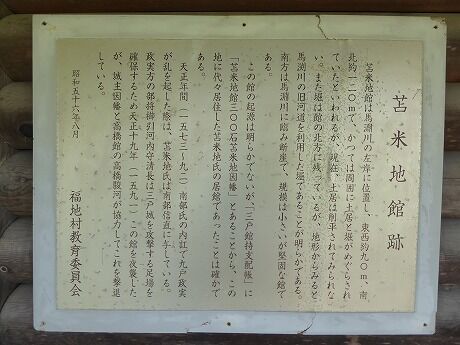 苫米地館跡
苫米地館は馬淵川の左岸に位置し、東西約九〇m、南
北約一二〇mで、かつては周囲に土居と堀がめぐらされ
ていたといわれるが、現在、土居は削平されてみられな
い。また堀は館の北方に残っているが、地形からみると
馬淵川の旧河道を利用した堀であることが明らかである。
南方は馬淵川に臨み断崖で、規模は小さいが堅固な館で
ある。
この館の起源は明らかでないが、「三戸館持支配帳」に
「苫米地館三〇〇石苫米地因幡」とあることから、この
地に代々居住した苫米地氏の居館であったことは確かで
ある。
天正年間(一五七三〜九二)南部氏の内訌で九戸政実
が乱を起した際は、苫米地氏は南部信直に与している。
政実方の部将櫛引河内守清長は三戸城を攻撃する足場を
確保するため天正十九年(一五九一)この館を攻襲した
が、城主因幡と高橋館の高橋駿河が協力してこれを撃退
している。
昭和五十六年八月
福地村教育委員会